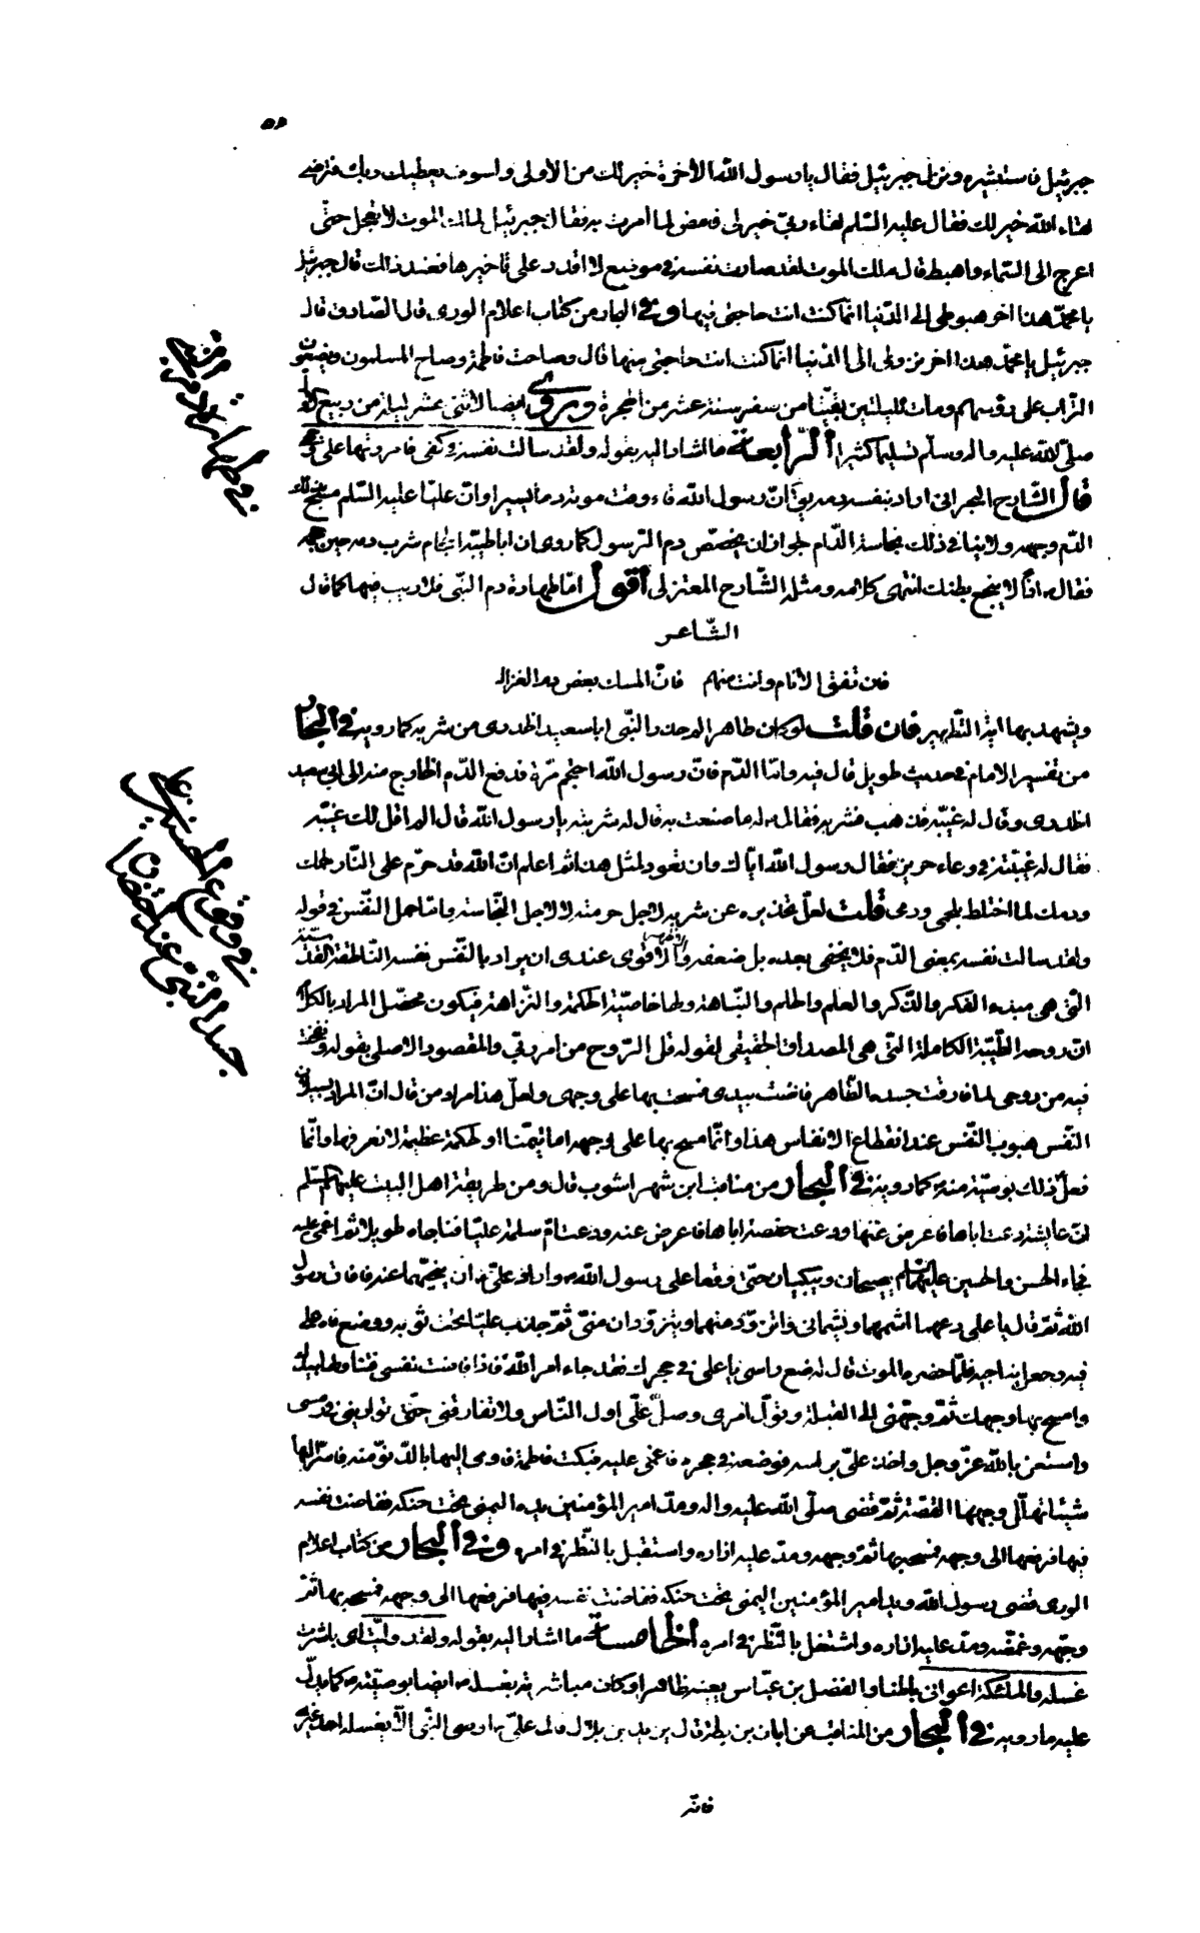 جبرئيل فاستشيره ونزل جبرئيل فقال يا رسول الله الآخرة خير لك من الأولى ولسوف يعطيك ربك فترضى
لقاء الله خير لك فقال عليه السّلم لقاء ربّي خير لي فامض لما امرت به فقال جبرئيل لملك الموت لا تعجل حتّى
اعرج الى السّماء واهبط قال ملك الموت لقد صارت نفسه في موضع لا اقدر على تأخيرها فعند ذلك قال جبرئيل
يا محمّد هذا آخر هبوطي الى الدّنيا انّما كنت انت حاجتي فيها وفي البحار من كتاب اعلام الورى قال الصّادق قال
جبرئيل يا محمّد هذا آخر نزولي الى الدّنيا انّما كنت انت حاجتي منها قال وصاحت فاطمة وصاح المسلمون ويضعون
التراب على رؤسهم ومات لليلتين بقيتا من صفر سنة عشر من الهجرة وروى ايضا لاثنتي عشر ليلة من ربيع الاول
صلّى الله عليه وآله وسلّم تسليما كثيرا الرابعة ما اشار اليه بقوله ولقد سالت نفسه في كفّى فامررتها على وجهي
قال الشّارح البحراني اراد بنفسه دمه يق انّ رسول الله قاء وقت موته دما يسيرا وانّ عليّا عليه السّلم مسح بذلك
الدّم وجهه ولا ينافي ذلك نجاسة الدّم لجواز ان يخصّص دم الرّسول كما روى ان ابا طيبة الحجّام شرب دمه حين حجمه
فقال اذا لا ينجع بطنك انتهى كلامه ومثله الشّارح المعتزلي اقول امّا طهارة دم النّبي فلا ريب فيها كما قال
الشّاعر
فان تفق الانام وانت منهم فانّ المسك بعض دم الغزال
ويشهد بها آية التّطهير فان قلت لو كان طاهرا لم حذّر النّبي ابا سعيد الخدري من شربه كما رويه في البحار
من تفسير الامام في حديث طويل قال فيه وامّا الدّم فانّ رسول الله احتجم مرّة فدفع الدّم الخارج منه الى ابي سعيد
الخدري وقال له غيّبه فذهب فشربه فقال له ما صنعت به قال له شربته يا رسول الله قال الم اقل لك غيّبه
فقال له غيّبته في وعاء حريز فقال رسول الله ايّاك وان تعود لمثل هذا ثم اعلم انّ الله قد حرّم على النّار لحمك
ودمك لما اختلط بلحمى ودمى قلت لعلّ تحذيره عن شربه لاجل حرمته لا لاجل النّجاسة وامّا حمل النّفس في قوله
ولقد سالت نفسه بمعنى الدّم فلا يخفى بعده بل ضعفه والاقوى عندى ان يراد بالنّفس نفسه النّاطقة القدسيّة
الّتي هي مبدء الفكر والذّكر والعلم والحلم والنّباهة ولها خاصيّة الحكمة والنّزاهة فيكون محصّل المراد بالكلام
انّ روحه الطّيّبة الكاملة الّتي هي المصداق الحقيقي لقوله قل الرّوح من امر ربّي والمقصود الاصلي بقوله ونفخت
فيه من روحى لما فارقت جسده الطّاهر فاضت بيدى فمسحت بها على وجهى ولعلّ هذا مراد من قال انّ المراد بسيلان
النّفس هبوب النّفس عند انقطاع الانفاس هذا وانّما مسح بها على وجهه اما تيمّنا او لحكمة عظيمة لا نعرفها وانّما
فعل ذلك بوصيّة منه كما رويه في البحار من مناقب ابن شهر اشوب قال ومن طريقة اهل البيت عليهم السّلم
انّ عايشة دعت اباها فاعرض عنها ودعت حفصة اباها فاعرض عنه ودعت امّ سلمة عليّا فناجاه طويلا ثم اغمى عليه
فجاء الحسن والحسين عليهما السلام يصيحان ويبكيان حتّى وقعا على رسول الله واراد علىّ ان ينحّيهما عنه فافاق رسول
الله ثمّ قال يا علي دعهما اشمّهما ويشمّاني واتزوّد منهما ويتزوّدان منّي ثمّ جذب عليّا تحت ثوبه ووضع فاه على
فيه وجعل يناجيه فلمّا حضره الموت قال له ضع راسى يا على في حجرك فقد جاء امر الله فاذا فاضت نفسى فتناولها بيدك
وامسح بها وجهك ثمّ وجّهني الى القبلة وتولّ امرى وصلّ علىّ اول النّاس ولا تفارقني حتّى تواريني في رمسى
واستعن بالله عزّ وجل واخذ علىّ براسه فوضعه في حجره فاغمى عليه فبكت فاطمة فاومى اليها بالدّنوّ منه فاسرّ اليها
شيئا تهلّل وجهها القصّة ثمّ قضى صلّى الله عليه وآله ومدّ امير المؤمنين يده اليمنى تحت حنكه ففاضت نفسه
فيها فرفعها الى وجهه فمسحه بها ثمّ وجهه ومدّ عليه ازاره واستقبل بالنّظر في امره وفي البحار من كتاب اعلام
الورى قضى رسول الله ويد امير المؤمنين اليمنى تحت حنكه ففاضت نفسه فيها فرفعها الى وجهه فمسحه بها ثمّ
وجّهه وغمّضه ومدّ عليه ازاره واشتغل بالنّظر في امره الخامسة ما اشار اليه بقوله ولقد ولّيت اى باشرت
غسله والملئكة اعواني باطنا والفضل بن عبّاس يعينه ظاهرا وكان مباشرته بغسله ايضا بوصيّته كما يدلّ
عليه ما رويه في البحار من المناقب عن ابان بن بطة قال يزيد بن بلال قال علىّ اوصى النّبي الّا يغسله احد غيرى
فانّه
في طهارة دم النبي
في وقوع المصيبة على
جسد النّبي عند احتضاره